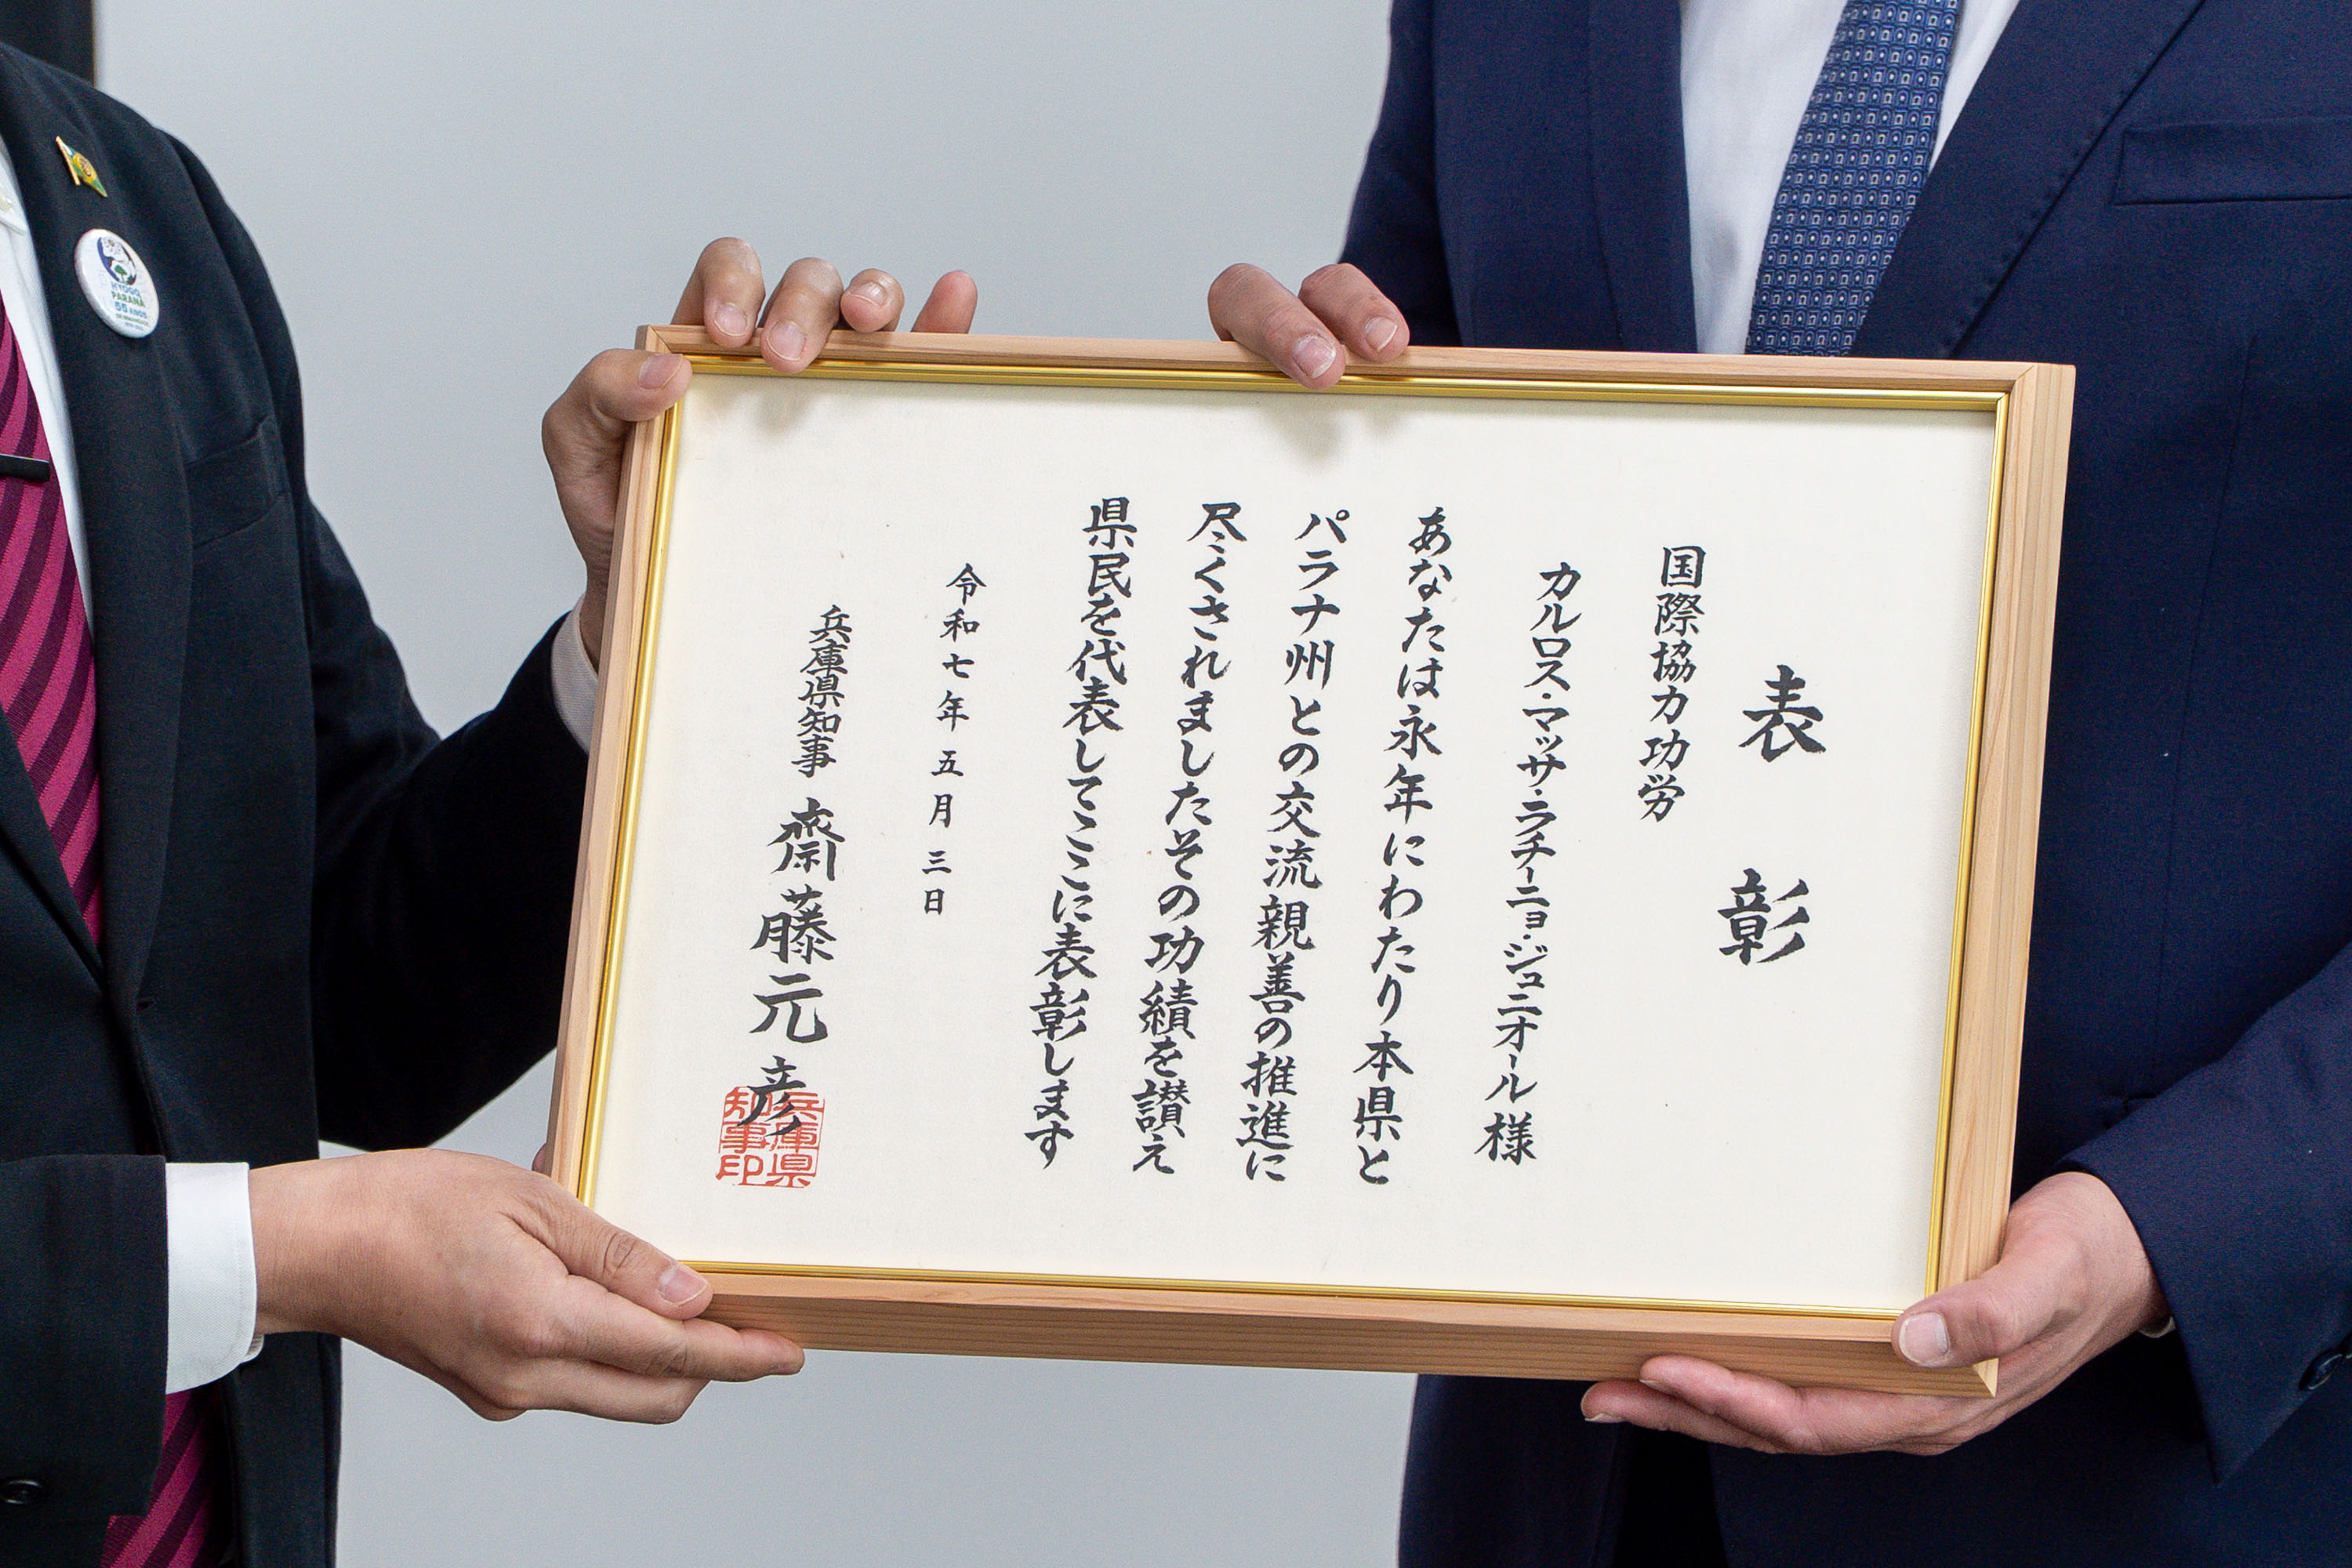 表彰
国際協力功労
カルロス・マッサ・ラチーニョ・ジュニオール様
あなたは永年にわたり本県と
パラナ州との交流親善の推進に
尽くされましたその功績を讃え
県民を代表してここに表彰します
令和七年五月三日
兵庫県知事 齋藤元彦
兵庫県
知事印
HYOGO
PARANÁ
55 ANOS